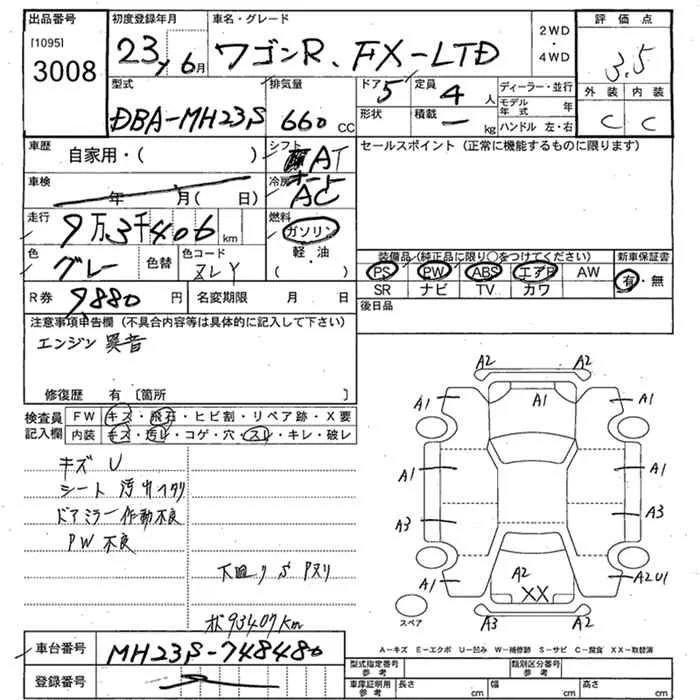 出品番号 初度登録年月 車名・グレード 評価点
[1095] 3008 23年6月 ワゴンR、FX-LTD 2WD・4WD 3.5
型式 排気量 ドア 5 定員 4人 ディーラー・並行 外装 内装
DBA-MH23S 660 CC 形状 積載 ー kg モデル年式 年 C C
ハンドル 左・右
車歴 自家用・( ) シフト AT セールスポイント(正常に機能するものに限ります)
車検 年 月( 日) 冷房 オート AC
走行 9万3千406km 燃料 ガソリン
色 グレー 色替 色コード ZLY 軽・油 ( )
装備品(純正品に限り○をつけてください) 新車保証書
PS PW ABS エアB AW 有・無
SR ナビ TV カワ
R券 9880円 名変期限 月 日 後日品
注意事項申告欄(不具合内容等は具体的に記入して下さい)
エンジン異音
修復歴 有〔箇所 〕
検査員記入欄 FW キズ・飛石・ヒビ割・リペア跡・X要
内装 キズ・汚レ・コゲ・穴・スレ・キレ・破レ
キズ U
シート 汚れ
ドアミラー作動不良
PW 不良
下廻り S Pヌリ
93407km
A2 A2
A1 A1 A1
A1 A1
A3 A3
A1 A2 XX A2U1
A3 A2
スペア
A-キズ E-エクボ U-凹み W-補修跡 S-サビ C-腐食 XX-取替済
車台番号 MH23S-748480
登録番号
型式指定番号 参考 類別区分番号 参考
車庫証明用 参考 長さ cm 幅 cm 高さ cm